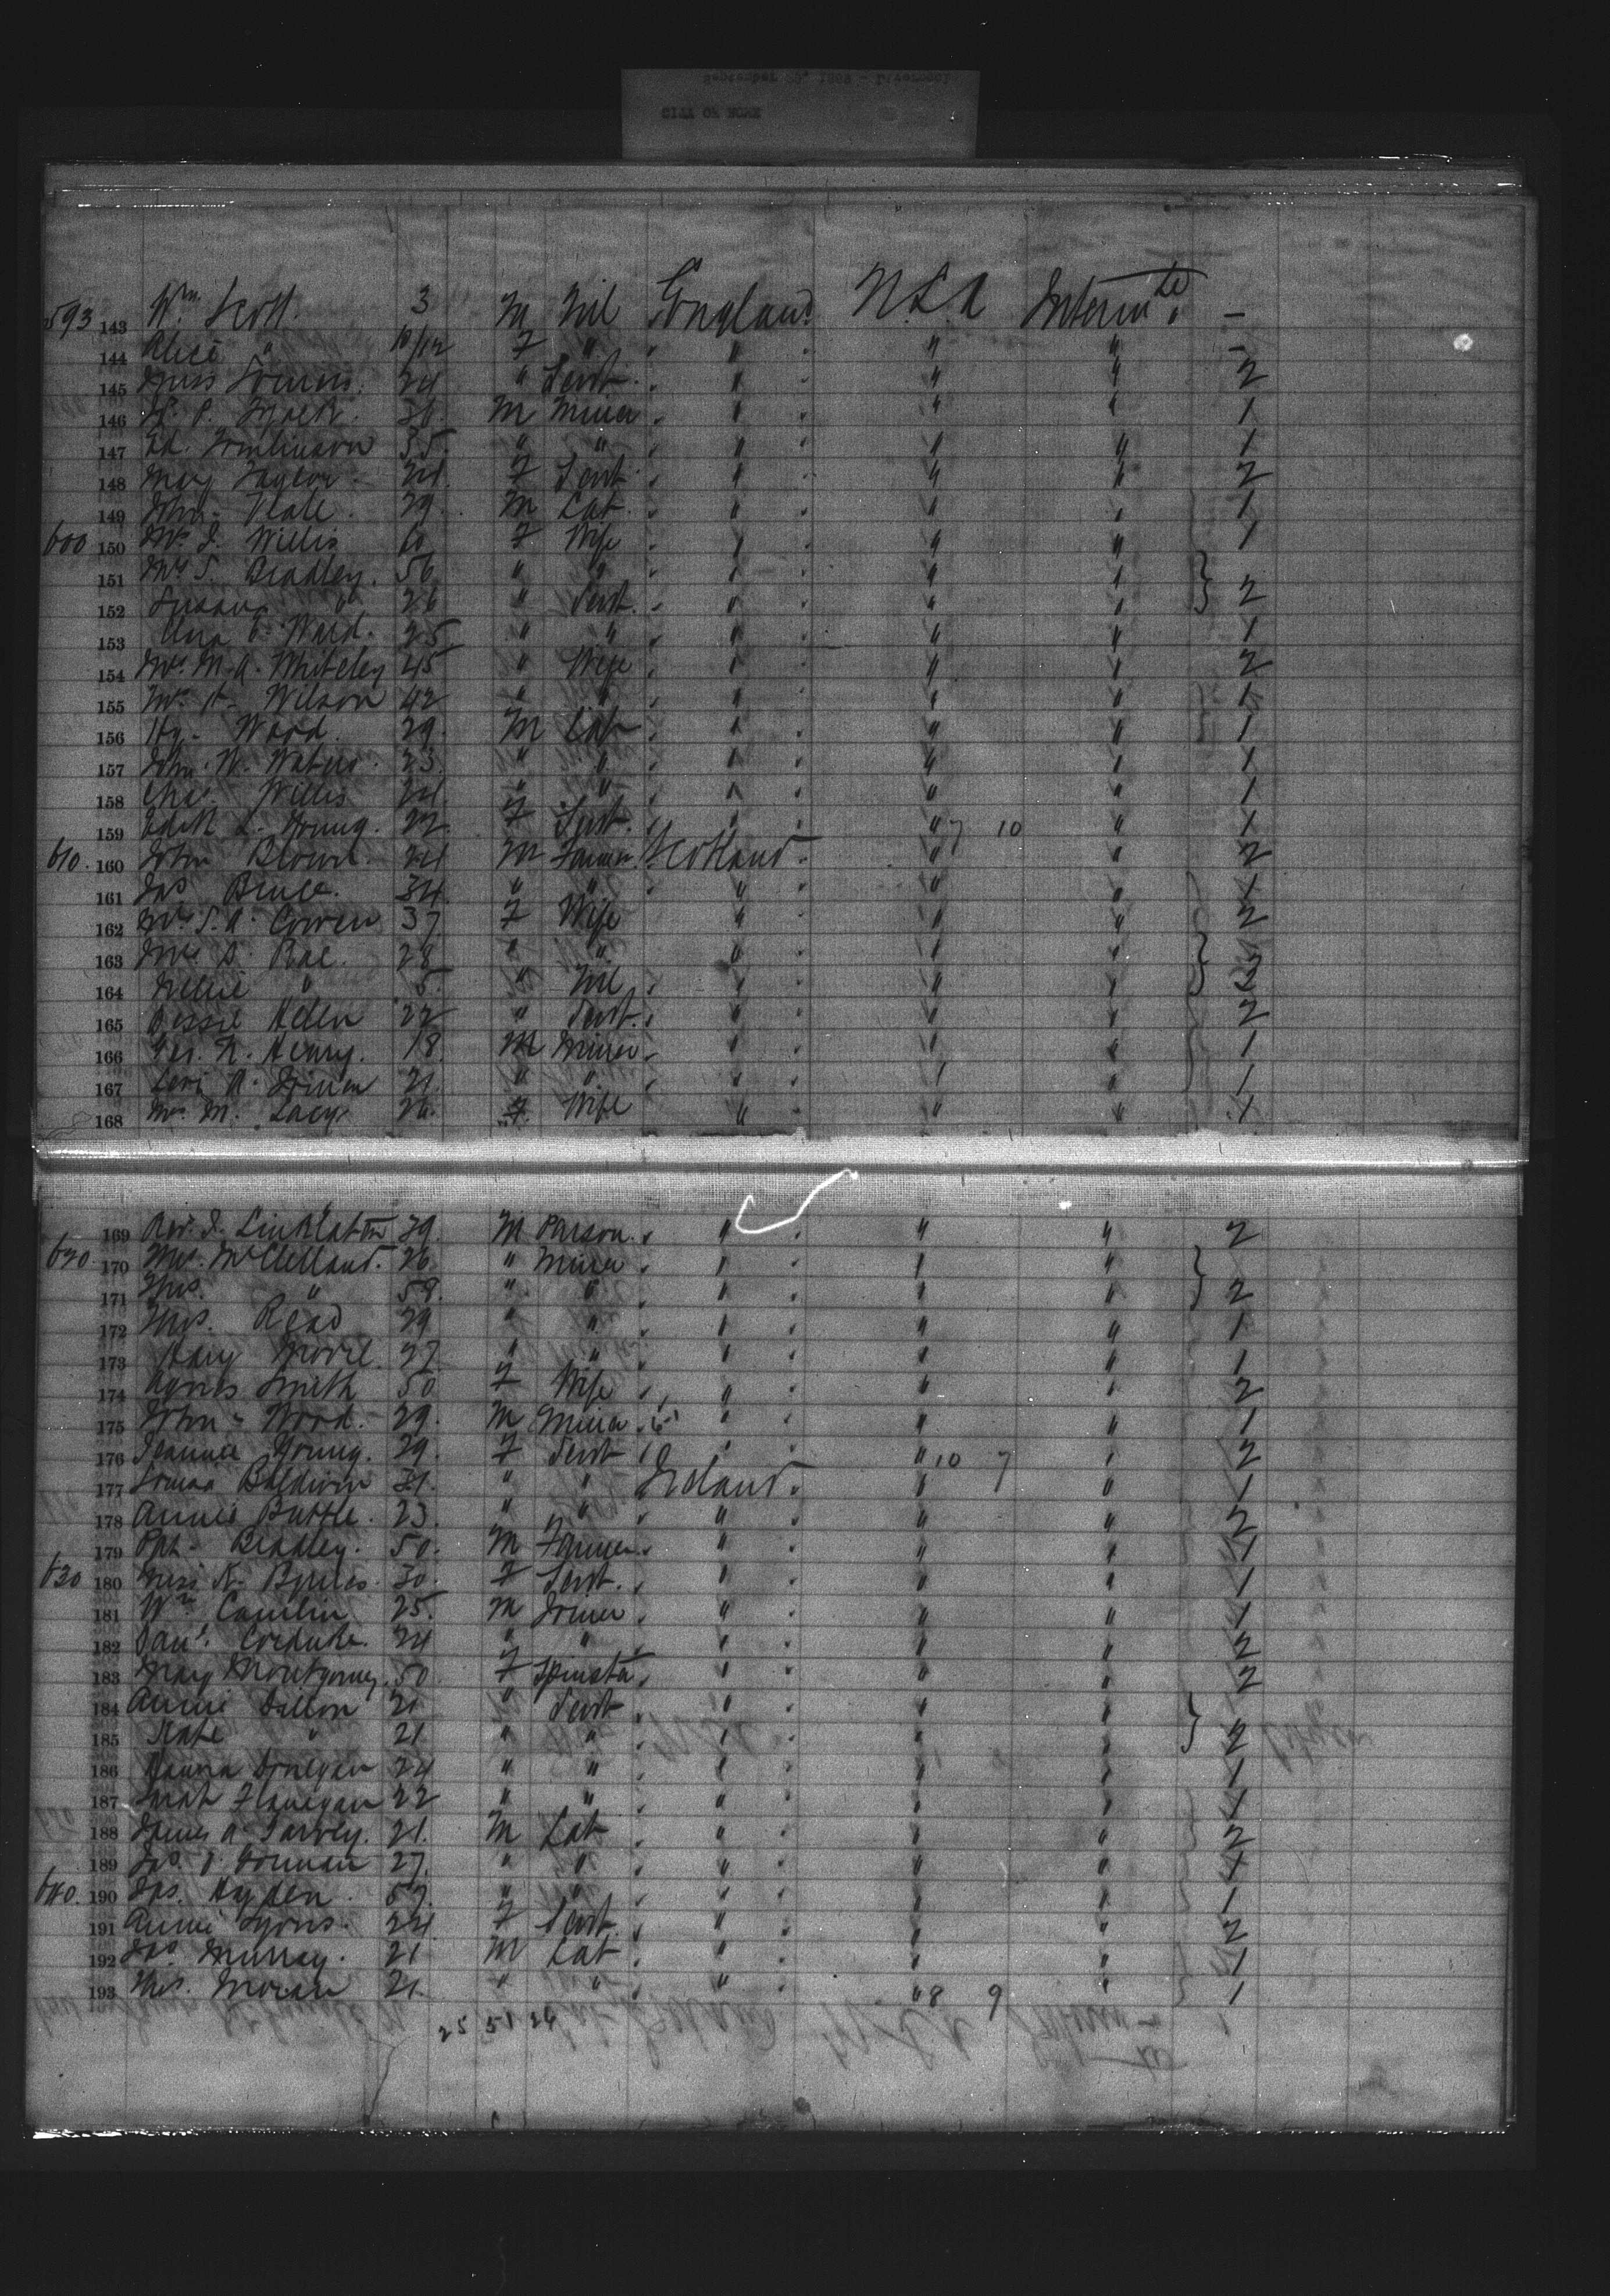 September 25, 1889 - Liverpool
CITY OF ROME
593 143 Wm Scott. 3 M Nil England. U.S.A Intermte. -
144 Alice " 10/12 F " " " " -
145 Miss 24 " Servt. " " " 2
146 M Miner " " " 1
147 Ed. Tomlinson 35 " " " " " 1
148 Mary Taylor 24 F Servt " " " 2
149 John 29 M Lab. " " " 1
600 150 Mrs J. Willis 60 F Wife " " " 1
151 Mrs S. Bradley. 56 " " " " "
152 Susan " 26 " Servt. " " " 2
153 Ward. 25 " " " " " 1
154 Mrs. M.A. Whiteley 45 " Wife " " " 2
155 Mrs H. Wilson 42 " " " " " 1
156 Hy. Ward. 29. M Lab " " " 1
157 John W. Waters. 23. " " " " " 1
158 Chas. Willis 24 " " " " " 1
159 Edith L. Young. 22. F Servt. " " 7 10 " 1
610. 160 John 24 M Farmer Scotland " " 2
161 Jas Bruce. 34. " " " " " 1
162 Mrs. S.A. Cowen 37 F Wife " " " 2
163 Mrs. Rae. 28 " " " " "
164 Nellie " 5. " Nil " " " 2
165 Jessie Aden 22 " Servt. " " " 2
166 Geo. N. Henry. 18. M Miner " " " 1
167 Levi 21. " " " " " 1
168 Mrs. M. Lacy 26. F. Wife " " " 1
169 Rev. J. Linklater 39. M Parson. " " " 2
620 170 McClelland. 26 " Miner " " "
171 Thos. " 58. " " " " " 2
172 Thos. Read 29 " " " " " 1
173 Harry 27. " " " " " 1
174 Agnes Smith 50 F Wife " " " 2
175 John Wood. 29. M Miner " " " 1
176 Jeannie Young. 29. F Servt " " 10 7 " 2
177 Baldwin 31. " " Ireland. " " 1
178 Annie Buttle. 23. " " " " " 2
179 Pat. Bradley. 50. M Farmer " " " 1
630 180 Miss K. Byrnes. 30. F Servt. " " " 1
181 Wm 25. M " " " 1
182 24 " " " " " 2
183 Mary Montgomey. 50 F Spinster " " " 2
184 Annie Dillon 21 " Servt " " "
185 Kate " 21 " " " " " 2
186 Hanna Donegan 24 " " " " " 1
187 Sarah Flanegan 22 " " " " " 1
188 James A. Garvey. 21. M Lab " " " 2
189 Jas. Gorman 27. " " " " " 1
640. 190 Jas. Hyden. 57. " " " " " 1
191 Annie Lyons. 24 F Servt. " " " 2
192 Jas. Murray. 21 M Lab " " " 1
193 Thos. Moran 21. " " " " 8 9 " 1
25 51 24